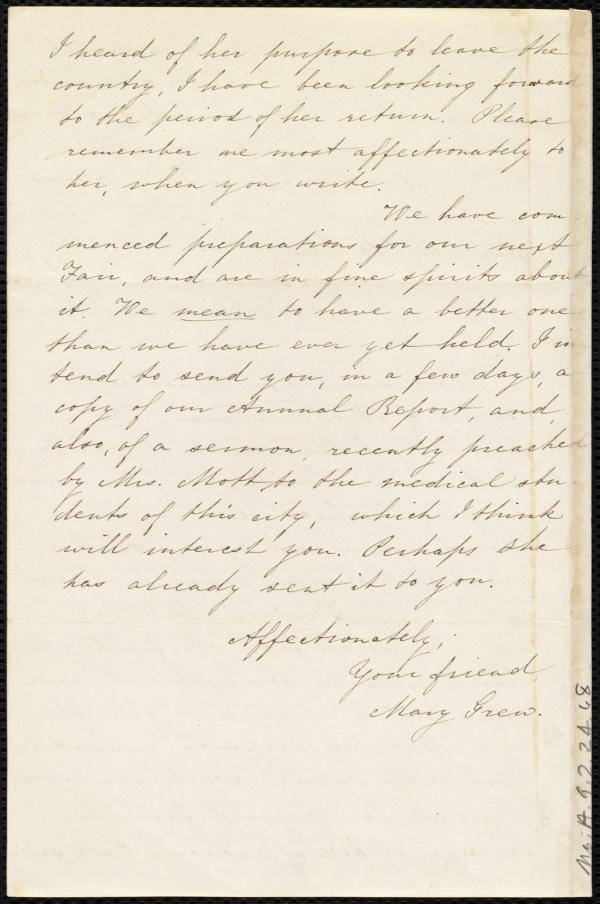 I heard of her purpose to leave the
country, I have been looking forward
to the period of her return. Please
remember me most affectionately to
her, when you write.
We have com
menced preparations for our next
Fair, and are in fine spirits about
it. We mean to have a better one
than we have ever yet held. I in
tend to send you, in a few days, a
copy of our Annual Report, and,
also, of a sermon, recently preached
by Mrs. Mott, to the medical stu
dents of this city, which I think
will interest you. Perhaps she
has already sent it to you.
Affectionately,
Your friend,
Mary Grew.
Ms. A. 9. 2. 24. 68